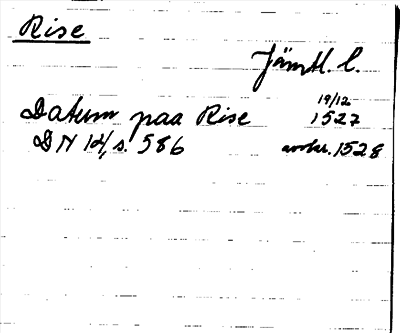 Rise
Jämtl. l.
Datum paa Rise 19/12 1527
DN 14, s. 586 avskr. 1528